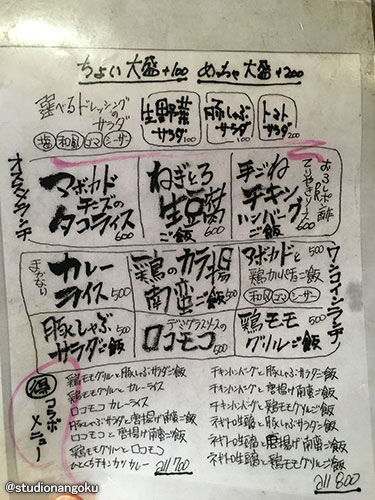 ちょい大盛+100 めっちゃ大盛+200
選べるドレッシングの
サラダ
塩 和風 ゴマ シーザー
生野菜
サラダ
100
豚しゃぶ
サラダ
100
トマト
サラダ
200
オススメランチ
アボカド
チーズの
タコライス
600
ねぎとろ
生豆腐
ご飯
600
手ごね
チキン
ハンバーグ
ご飯
600
おろしポン酢
OR
てりやきソース
まかない
カレー
ライス
500
鶏のカラ揚
南蛮ご飯
500
アボカドと
500
鶏カルパッチョご飯
和風 ゴマ シーザー
ワンコインランチ
豚しゃぶ
サラダご飯
500
デミグラスソースの
ロコモコ
500
鶏モモ
500
グリルご飯
得 コラボメニュー
鶏モモグリルと豚しゃぶサラダご飯
鶏モモグリルとカレーライス
ロコモコカレーライス
豚しゃぶサラダと唐揚げ南蛮ご飯
ロコモコと唐揚げ南蛮ご飯
鶏モモグリルとロコモコ
ひとくちチキンカツカレー all 700
チキンハンバーグと豚しゃぶサラダご飯
チキンハンバーグと唐揚げ南蛮ご飯
チキンハンバーグと鶏モモグリルご飯
ネギトロ生豆腐と豚しゃぶサラダご飯
ネギトロ生豆腐と唐揚げ南蛮ご飯
ネギトロ生豆腐と鶏モモグリルご飯
all 800
@studionangoku